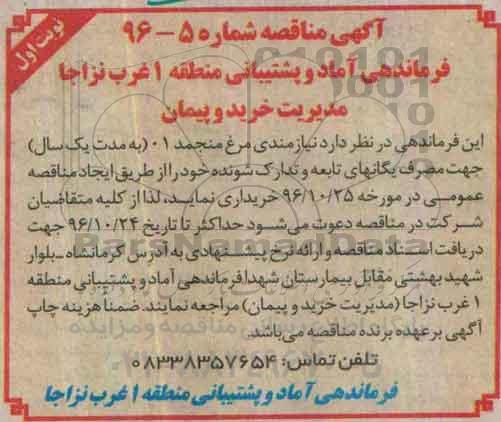 نوبت اول
آگهی مناقصه شماره ۵ - ۹۶
فرماندهی آماد و پشتیبانی منطقه ۱ غرب نزاجا
مدیریت خرید و پیمان
این فرماندهی در نظر دارد نیازمندی مرغ منجمد ۰۱ (به مدت یک سال)
جهت مصرف یگانهای تابعه و تدارک شونده خود را از طریق ایجاد مناقصه
عمومی در مورخه ۹۶/۱۰/۲۵ خریداری نماید، لذا از کلیه متقاضیان
شرکت در مناقصه دعوت می‌شود حداکثر تا تاریخ ۹۶/۱۰/۲۴ جهت
دریافت اسناد مناقصه و ارائه نرخ پیشنهادی به آدرس کرمانشاه - بلوار
شهید بهشتی مقابل بیمارستان شهدا فرماندهی آماد و پشتیبانی منطقه
۱ غرب نزاجا (مدیریت خرید و پیمان) مراجعه نمایند. ضمنا هزینه چاپ
آگهی بر عهده برنده مناقصه می‌باشد.
تلفن تماس: ۰۸۳۳۸۳۵۷۶۵۴
فرماندهی آماد و پشتیبانی منطقه ۱ غرب نزاجا
ParsNamadData